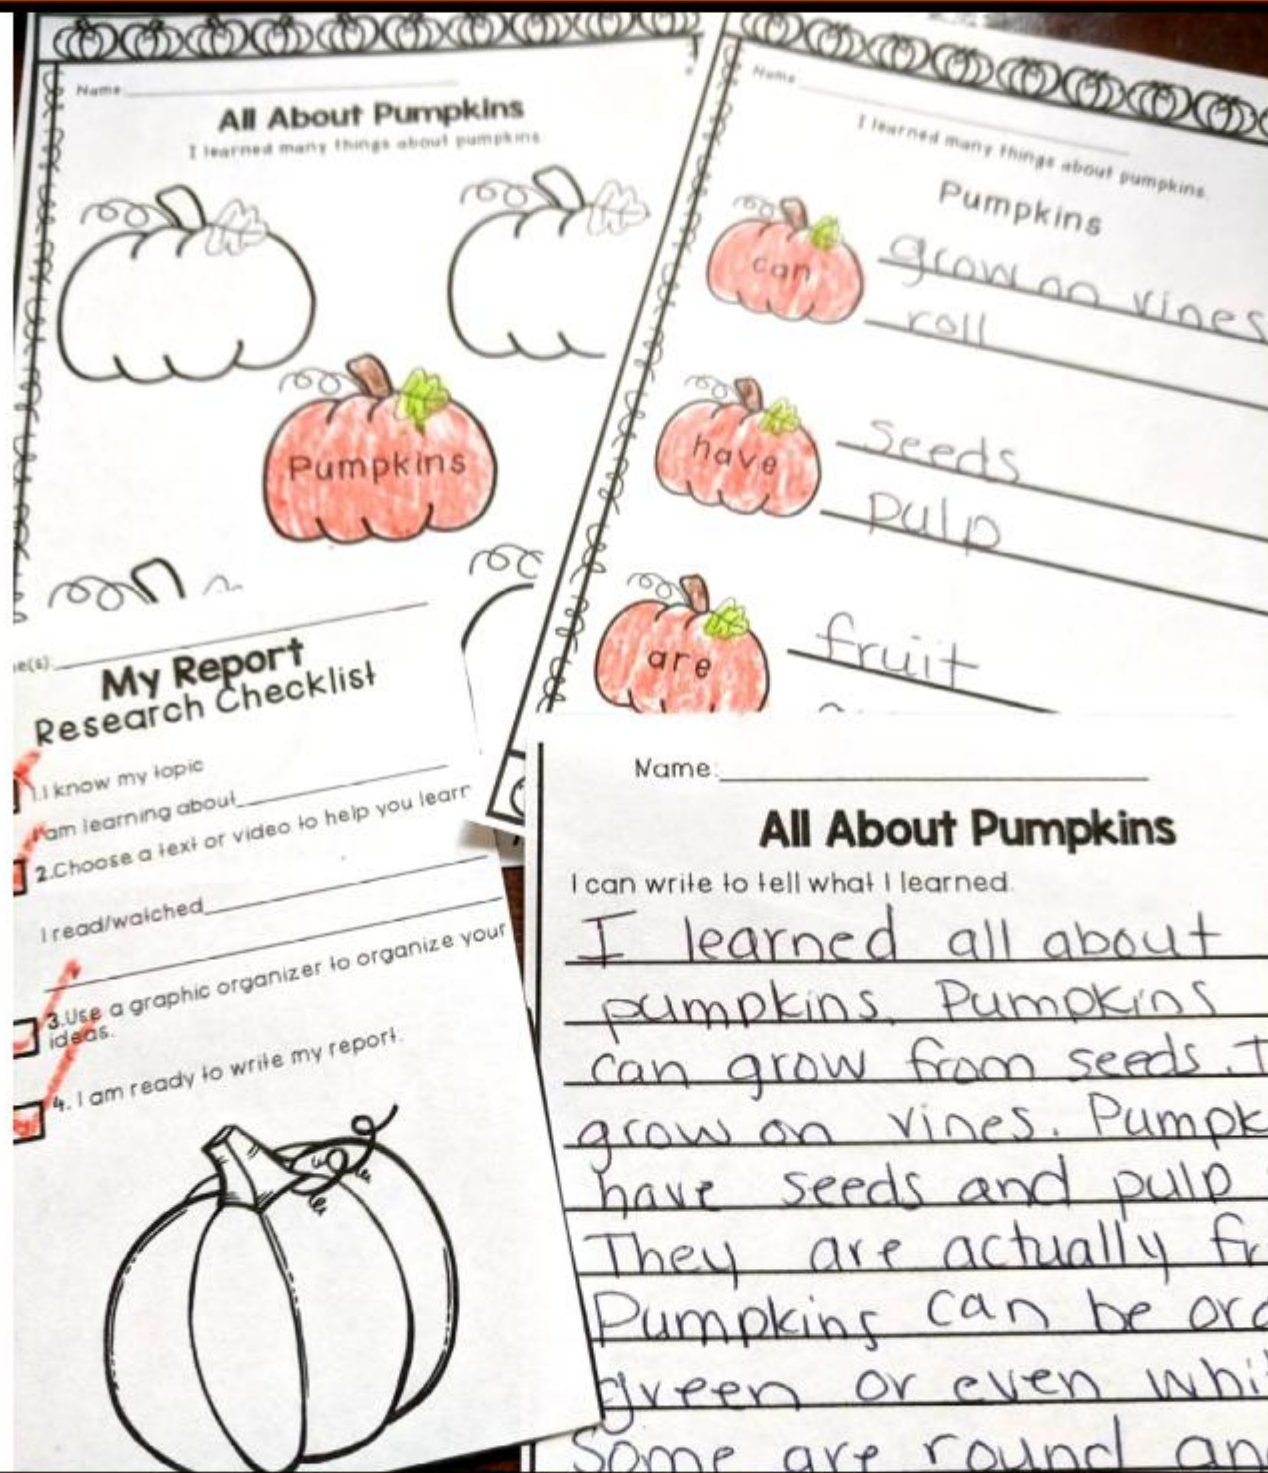 Name
All About Pumpkins
I learned many things about pumpkins
Pumpkins
Name
I learned many things about pumpkins.
Pumpkins
can
grow on vines
roll
have
seeds
pulp
are
fruit
My Report
Research Checklist
1.I know my topic
I am learning about
2.Choose a text or video to help you learn
I read/watched
3.Use a graphic organizer to organize your
ideas.
4. I am ready to write my report.
Name:
All About Pumpkins
I can write to tell what I learned.
I learned all about
pumpkins. Pumpkins
can grow from seeds.
grow on vines.
have seeds and pulp
They are actually
Pumpkins can be
green or even
Some are round